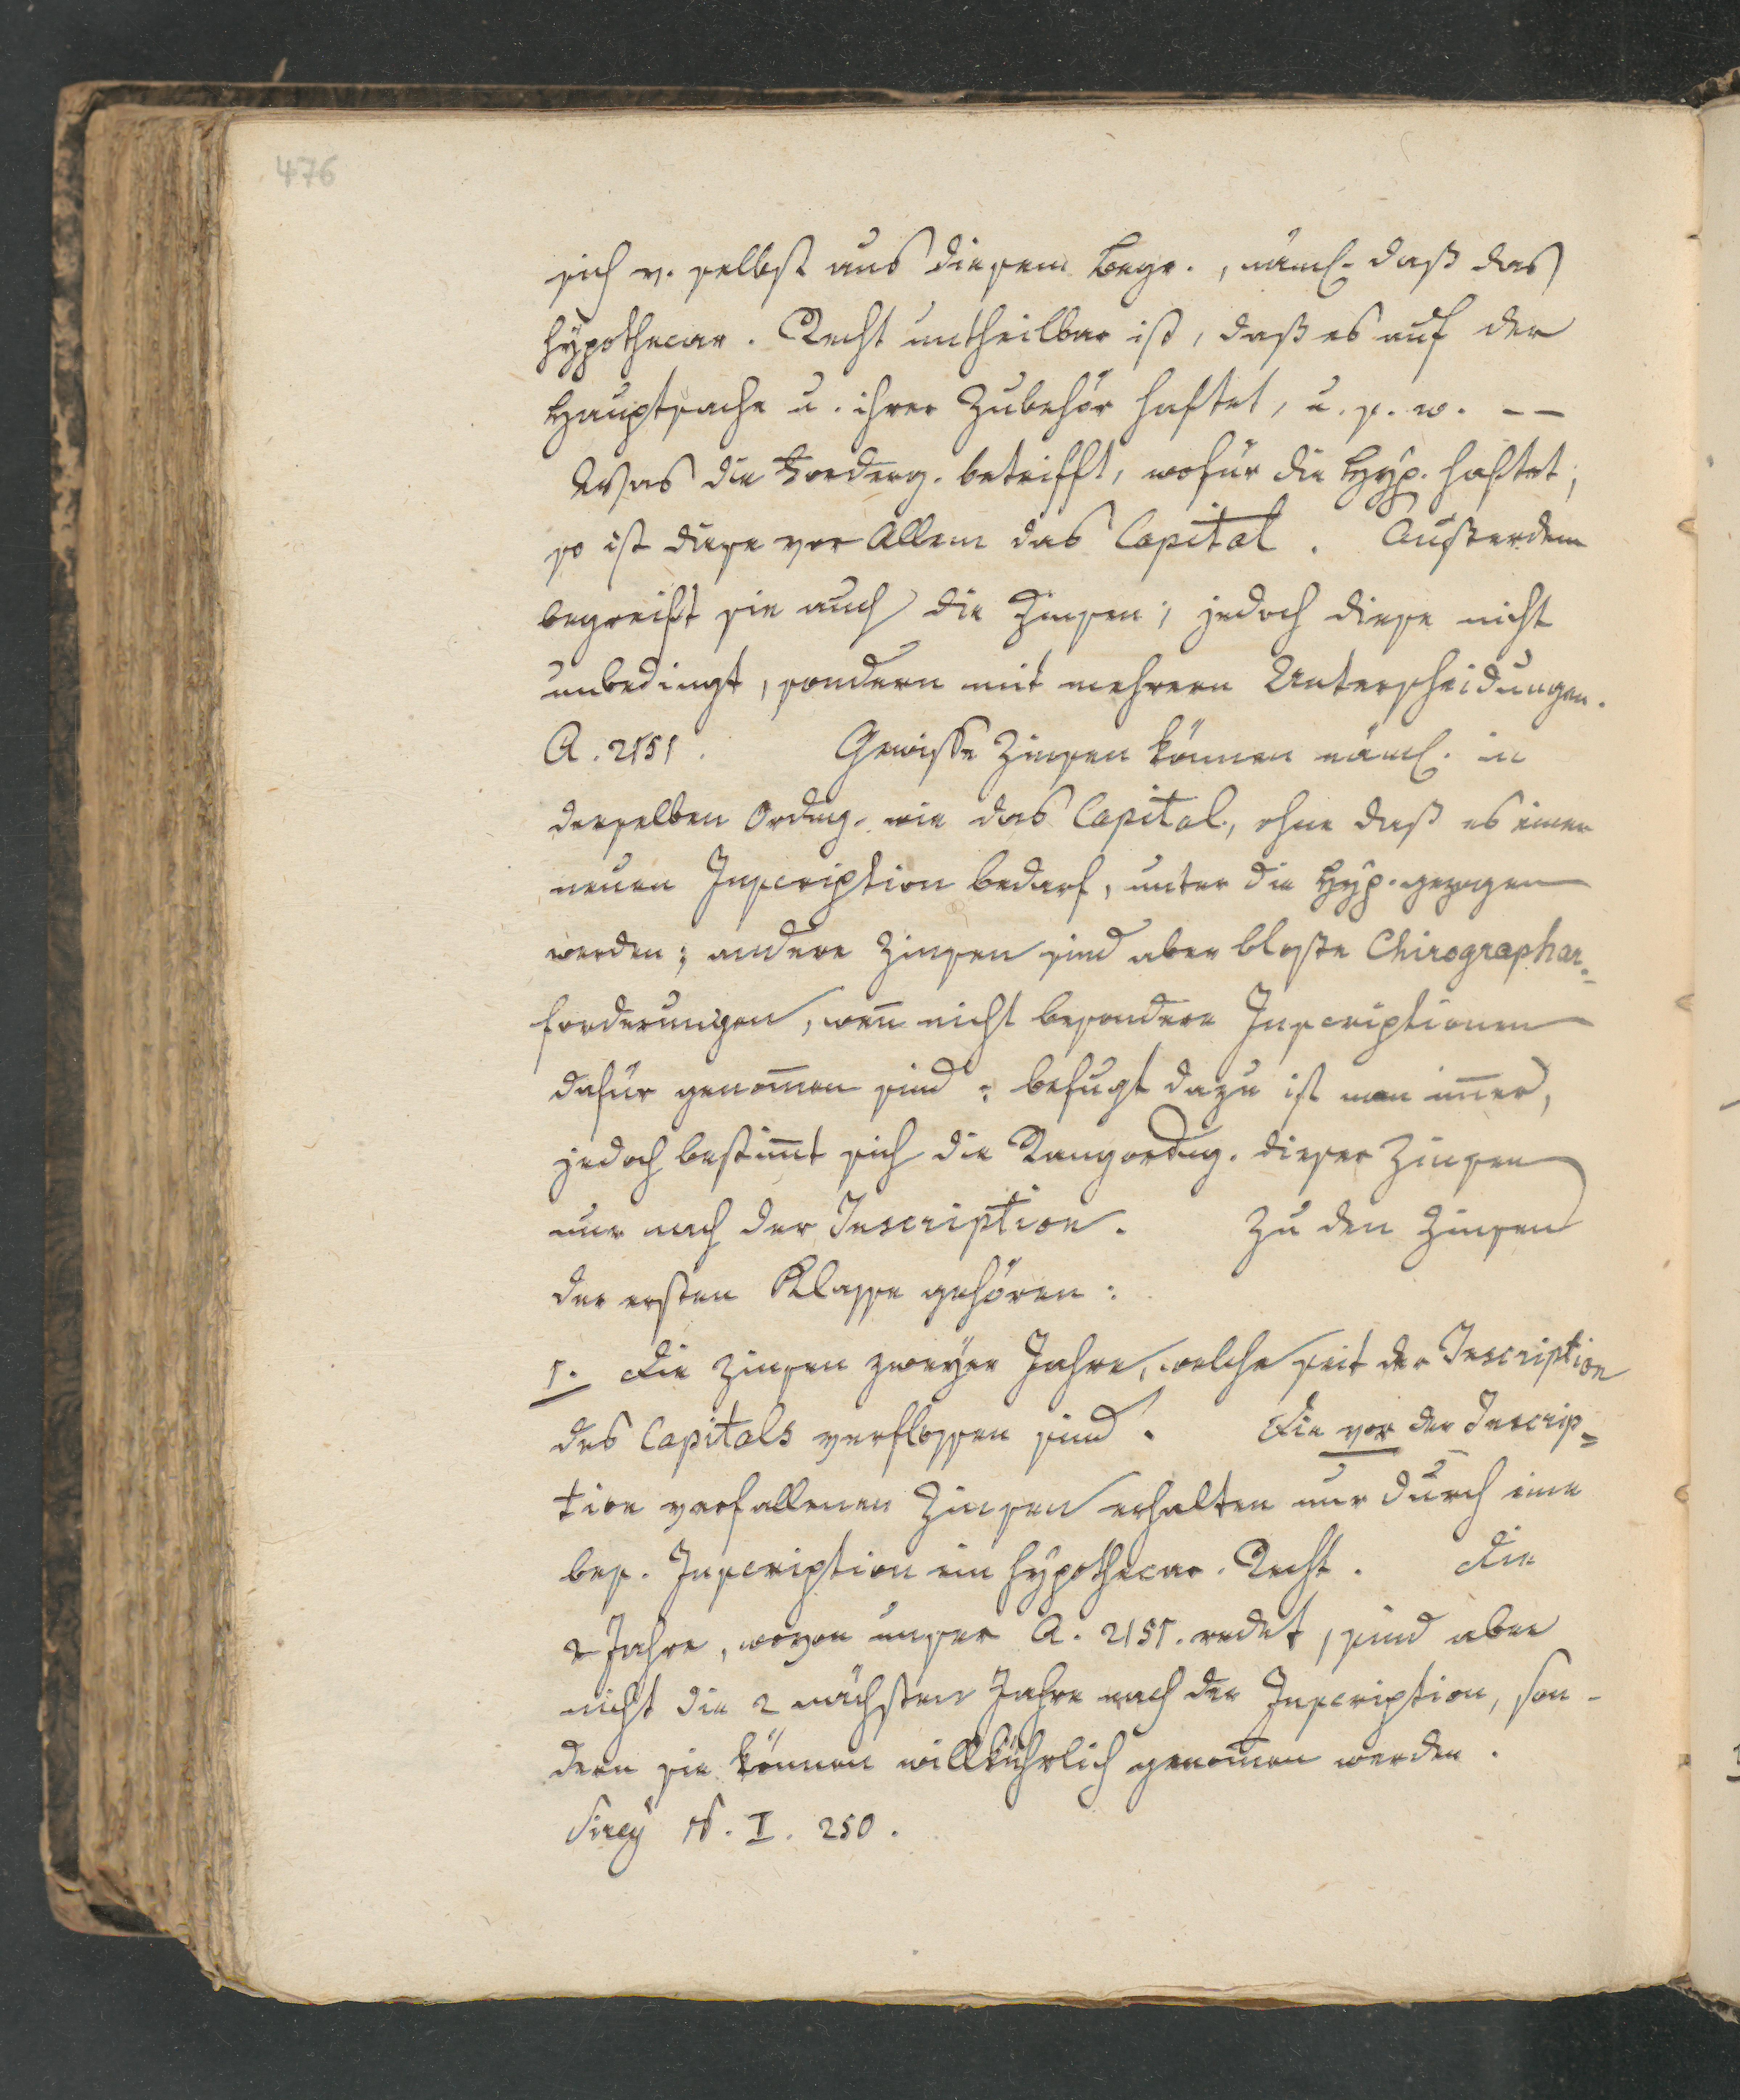 476
sich v. selbst aus diesem Begr., näml. daß das
hypothecar. Recht untheilbar ist, daß es auf der
Hauptsache u. ihrer Zubehör haftet, u. s. w. --
Was die Forderg. betrifft, wofür die Hyp. haftet,
so ist diese vor Allem das Capital. Außerdem
begreift sie auch die Zinsen; jedoch diese nicht
unbedingt, sondern mit mehrern Unterscheidungen.
A. 2151. Gewisse Zinsen können näml. in
derselben Ordng. wie das Capital, ohne daß es einer
neuen Inscription bedarf, unter die Hyp. gezogen
werden; andere Zinsen sind aber bloße Chirographar-
forderungen, wen̄ nicht besondere Inscriptionen
dafür genom̄en sind; befugt dazu ist man im̄er,
jedoch bestim̄t sich die Rangordng. dieser Zinsen
nur nach der Inscription. Zu den Zinsen
der ersten Klasse gehören:
1. Die Zinsen zweyer Jahre, welche seit der Inscription
des Capitals verflossen sind. Die vor der Inscrip=
tion verfallenen Zinsen erhalten nur durch eine
bes. Inscription ein hypothecar. Recht. Die
2 Jahre, wovon unser A. 2151. redet, sind aber
nicht die 2 nächsten Jahre nach der Inscription, son-
dern sie können willkührlich genom̄en werden.
Sirey I. 250.